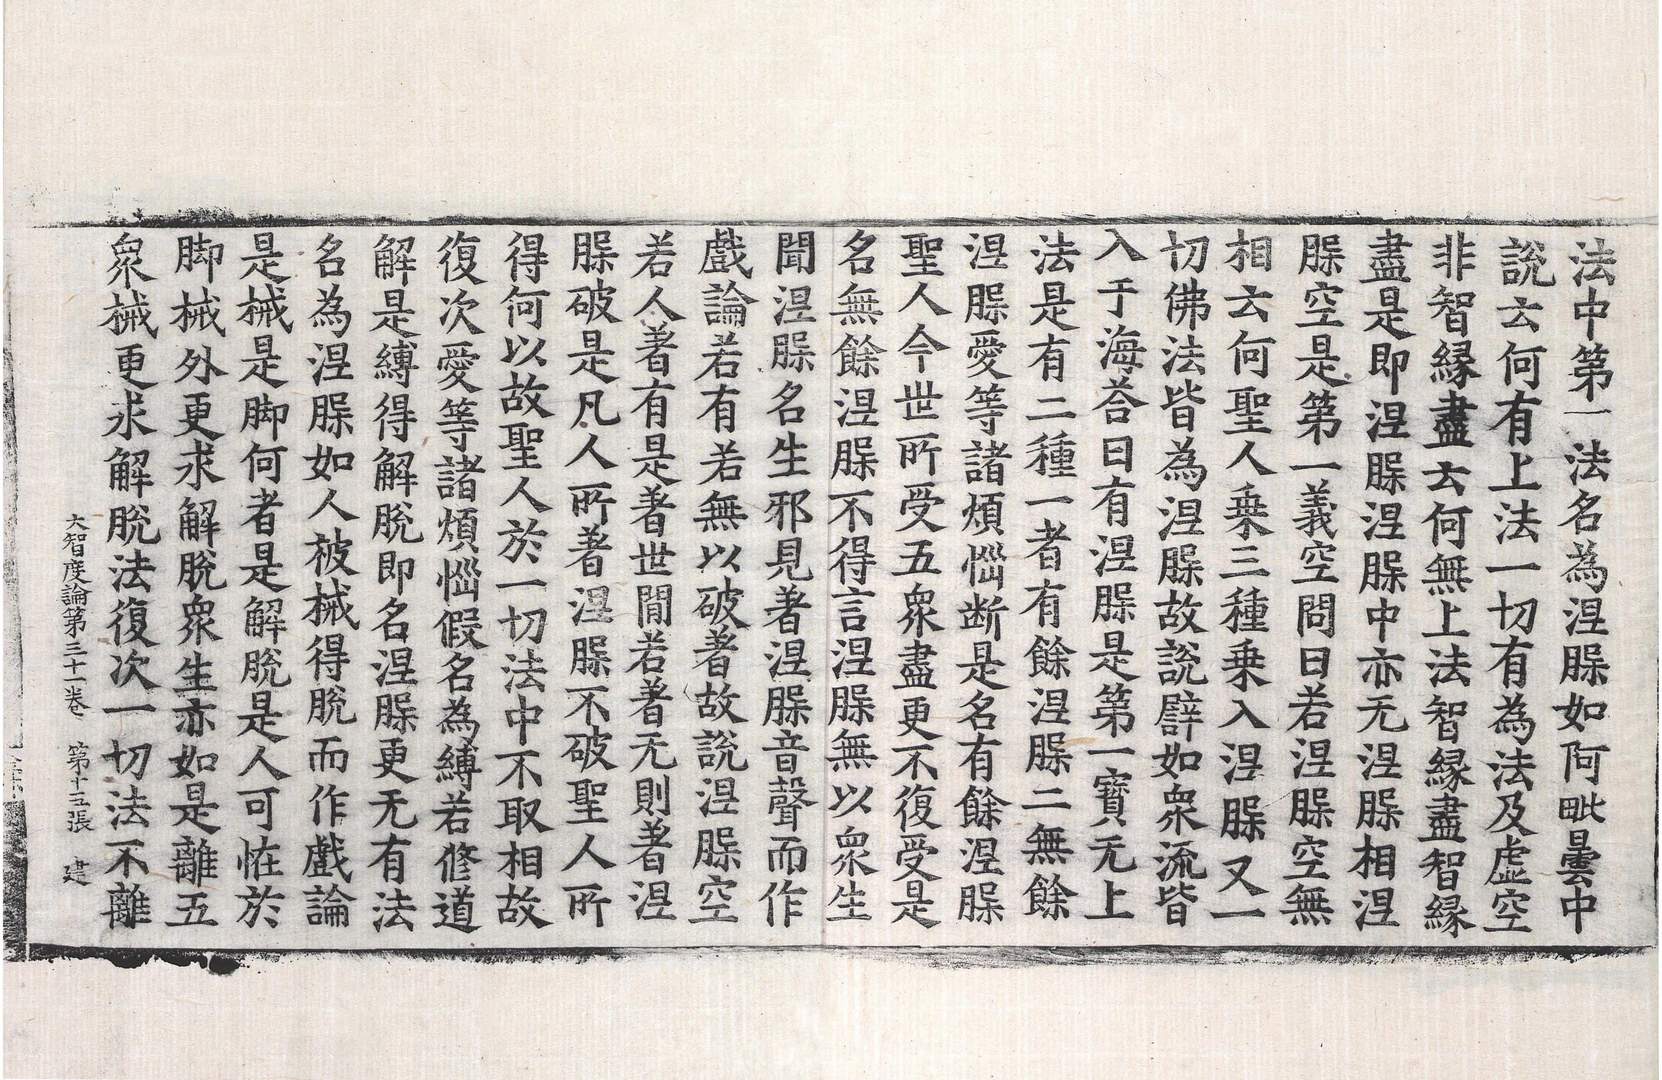 法中第一法名為涅槃如阿毗曇中
說云何有上法一切有為法及虛空
非智緣盡云何無上法智緣盡智緣
盡是即涅槃涅槃中亦无涅槃相涅
槃空是第一義空問曰若涅槃空無
相云何聖人乗三種乗入涅槃又一
切佛法皆為涅槃故說譬如衆流皆
入于海荅曰有涅槃是第一寶无上
法是有二種一者有餘涅槃二無餘
涅槃愛等諸煩惱断是名有餘涅槃
聖人今世所受五衆盡更不復受是
名無餘涅槃不得言涅槃無以衆生
聞涅槃名生邪見著涅槃音聲而作
戲論若有若無以破著故說涅槃空
若人著有是著世間若著无則著涅
槃破是凡人所著涅槃不破聖人所
得何以故聖人於一切法中不取相故
復次愛等諸煩惱假名為縛若修道
解是縛得解脫即名涅槃更无有法
名為涅槃如人被械得脫而作戲論
是械是脚何者是解脫是人可恠於
脚械外更求解脫衆生亦如是離五
衆械更求解脫法復次一切法不離
大智度論第三十一卷 第十五張 建